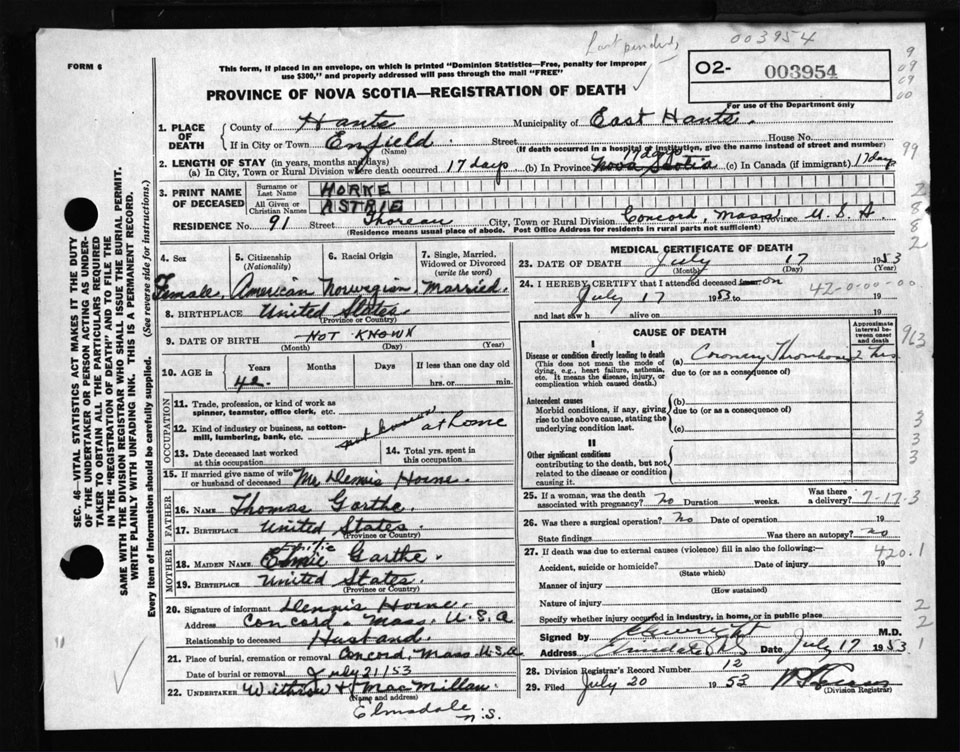 003954
FORM 6
This form, if placed in an envelope, on which is printed "Dominion Statistics—Free, penalty for improper
use $300," and properly addressed will pass through the mail "FREE"
O2- 003954
PROVINCE OF NOVA SCOTIA—REGISTRATION OF DEATH
For use of the Department only
1. PLACE OF DEATH
County of Hants Municipality of East Hants.
If in City or Town Enfield. Street House No.
(Name) (If death occurred in a hospital or institution, give the name instead of street and number)
2. LENGTH OF STAY (in years, months and days)
(a) In City, Town or Rural Division where death occurred 17 days (b) In Province 17 days Nova Scotia (c) In Canada (if immigrant) 17 days
3. PRINT NAME OF DECEASED
Surname or Last Name HORNE
All Given or Christian Names ASTRIE
RESIDENCE No. 91 Street Thoreau City, Town or Rural Division Concord, Mass. Province U.S.A.
(Residence means usual place of abode. Post Office Address for residents in rural parts not sufficient)
4. Sex
Female.
5. Citizenship
(Nationality)
American
6. Racial Origin
Norwegian
7. Single, Married, Widowed or Divorced
(write the word)
Married.
8. BIRTHPLACE United States.
(Province or Country)
9. DATE OF BIRTH NOT KNOWN
(Month) (Day) (Year)
10. AGE in
Years Months Days If less than one day
42 hrs. or min.
OCCUPATION
11. Trade, profession, or kind of work as
spinner, teamster, office clerk, etc.
12. Kind of industry or business, as cotton-
mill, lumbering, bank, etc. at home
not known
13. Date deceased last worked
at this occupation
14. Total yrs. spent in
this occupation
15. If married give name of wife
or husband of deceased Mr Dennis Horne.
FATHER
16. NAME Thomas Garthe.
17. BIRTHPLACE United States.
(Province or Country)
MOTHER
18. MAIDEN NAME Garthe
19. BIRTHPLACE United States.
(Province or Country)
20. Signature of informant Dennis Horne.
Address Concord, Mass. U.S.A
Relationship to deceased Husband.
21. Place of burial, cremation or removal Concord, Mass U.S.A
Date of burial or removal July 21/53
22. UNDERTAKER Withrow & MacMillan.
(Name and address)
Elmsdale
N.S.
MEDICAL CERTIFICATE OF DEATH
23. DATE OF DEATH July 17 1953
(Month) (Day) (Year)
24. I HEREBY CERTIFY that I attended deceased from on
July 17 1953 to 19
42-0-00-00
and last saw h alive on 19
CAUSE OF DEATH
Approximate interval between onset and death
I
Disease or condition directly leading to death
(This does not mean the mode of dying, e.g., heart failure, asthenia, etc. It means the disease, injury, or complication which caused death.)
(a) Coronary Thrombosis 2 hrs
due to (or as a consequence of)
Antecedent causes
Morbid conditions, if any, giving rise to the above cause, stating the underlying condition last.
(b)
due to (or as a consequence of)
(c)
II
Other significant conditions
contributing to the death, but not related to the disease or condition causing it.
25. If a woman, was the death
associated with pregnancy? No Duration weeks. Was there a delivery?
7-17-3
26. Was there a surgical operation? No Date of operation 19
State findings Was there an autopsy? no
27. If death was due to external causes (violence) fill in also the following:—
420.1
Accident, suicide or homicide? Date of injury 19
(State which)
Manner of injury
(How sustained)
Nature of injury
Specify whether injury occurred in industry, in home, or in public place
Signed by M.D.
Address Elmsdale NS Date July 17 1953
28. Division Registrar's Record Number 12
29. Filed July 20 1953
(Division Registrar)
SEC. 46—VITAL STATISTICS ACT MAKES IT THE DUTY
OF THE UNDERTAKER OR PERSON ACTING AS UNDER-
TAKER TO OBTAIN ALL THE PARTICULARS REQUIRED
IN THE "REGISTRATION OF DEATH" AND TO FILE THE
SAME WITH THE DIVISION REGISTRAR WHO SHALL ISSUE THE BURIAL PERMIT.
WRITE PLAINLY WITH UNFADING INK. THIS IS A PERMANENT RECORD.
Every item of information should be carefully supplied. (See reverse side for instructions.)